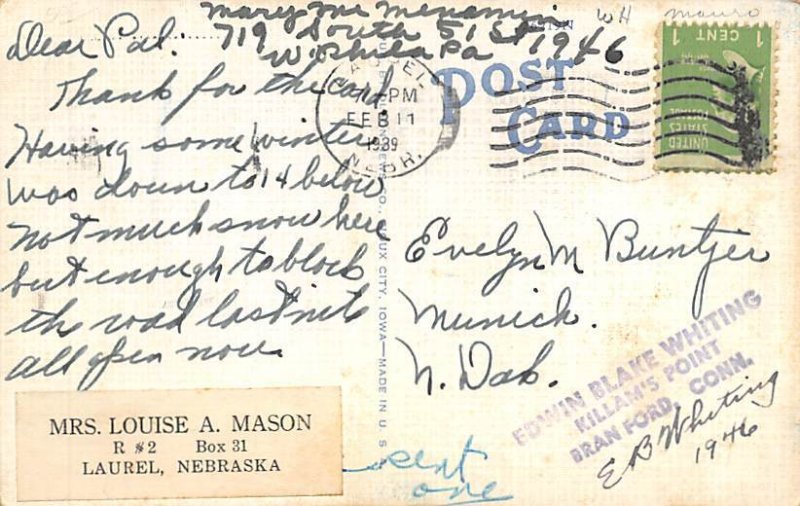 Mary Mc Menamin
719 South 51 St 1946
W. Phila Pa
WH
Dear Pal:
Thank for the card
Having some winter
was down to 14 below
not much snow here
but enough to block
the road last nite
all open now
MRS. LOUISE A. MASON
R #2 Box 31
LAUREL, NEBRASKA
LAUREL
PM
FEB 11
1939
NEBR.
POST
CARD
1 CENT 1
UNITED
STATES
POSTAGE
CO., SIOUX CITY, IOWA—MADE IN U. S. A.
Evelyn M Buntjer
Munich.
N. Dak.
EDWIN BLAKE WHITING
KILLAM'S POINT
BRANFORD, CONN.
E B Whiting
1946
sent
one